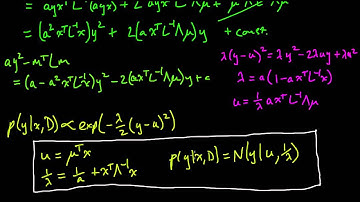 = ayxᵀL⁻¹(ayx) + 2ayxᵀL⁻¹Λμ + μᵀΛL⁻¹Λμ
= (a²xᵀL⁻¹x)y² + 2(axᵀL⁻¹Λμ)y + const.
ay² - mᵀLm
= (a - a²xᵀL⁻¹x)y² - 2(axᵀL⁻¹Λμ)y + c
λ(y-u)² = λy² - 2λuy + λu²
λ = a(1 - axᵀL⁻¹x)
u = 1/λ axᵀL⁻¹Λμ
p(y|x,D) ∝ exp(-λ/2 (y-u)²)
u = μᵀx
1/λ = 1/a + xᵀΛ⁻¹x
p(y|x,D) = N(y|u, 1/λ)